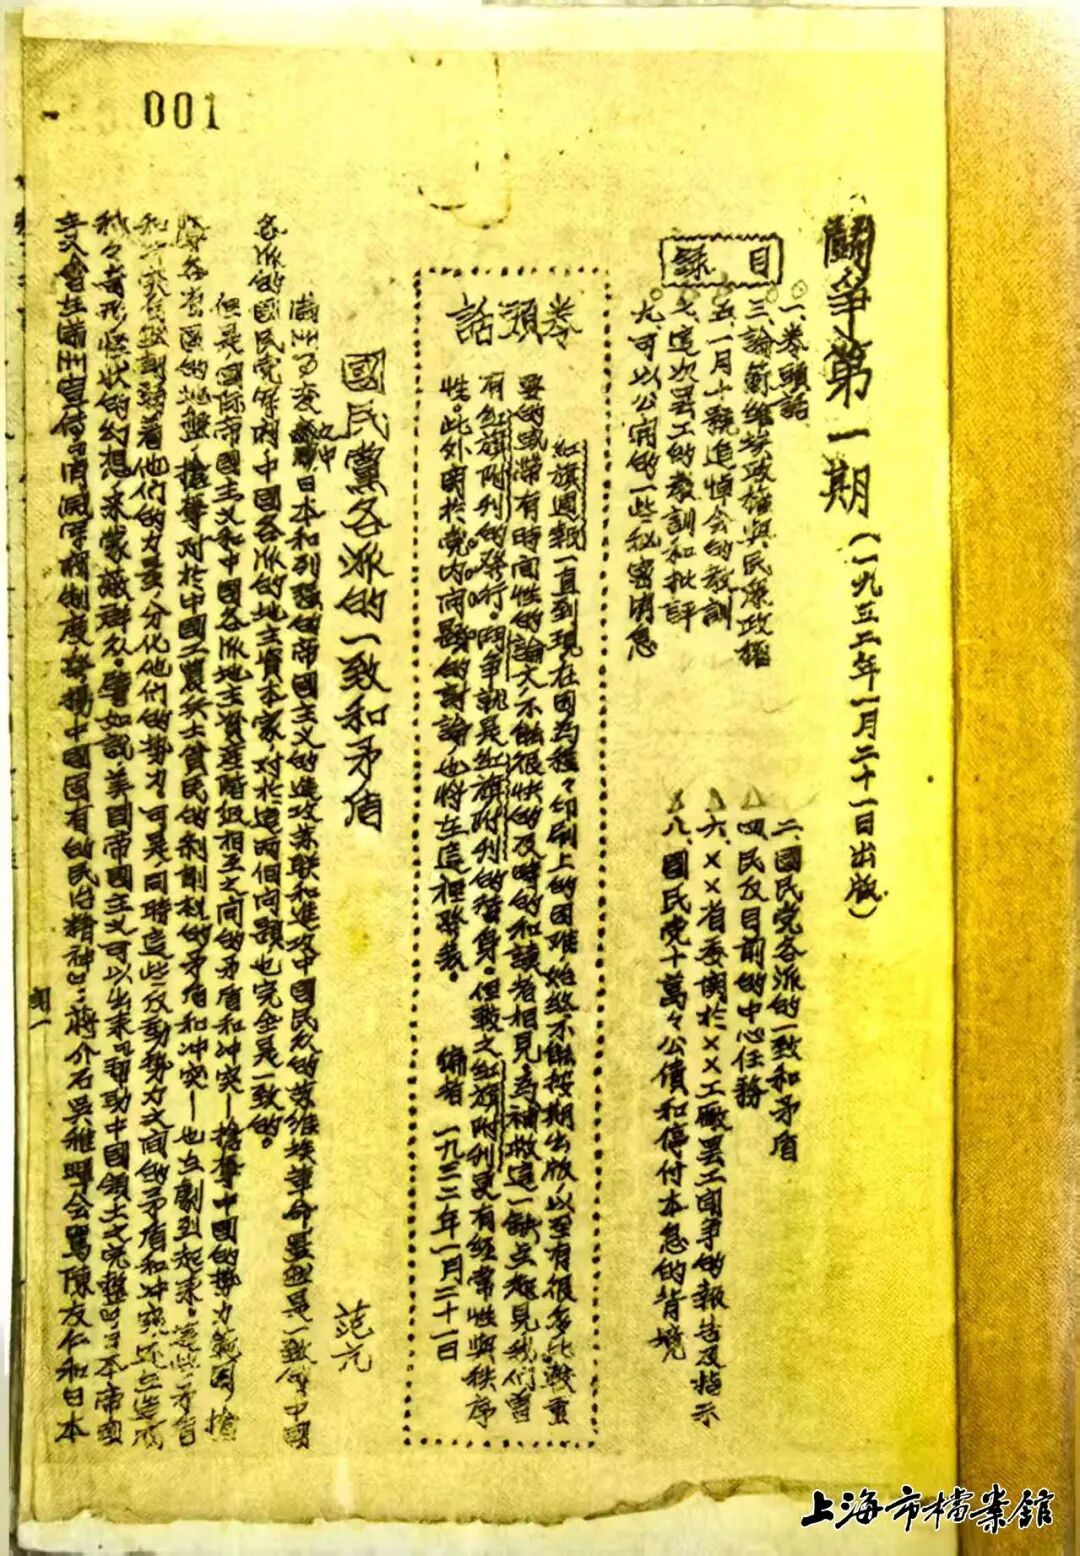 001
鬭爭第一期(一九三二年一月二十一日出版)
目録
一、卷頭話
二、國民党各派的一致和矛盾
三、論蘇維埃政權與民衆政權
四、民反目前的中心任務
五、一月十號追悼会的教訓
六、××省委関於××工廠罢工鬥争的報告及指示
七、這次罢工的教訓和批評
八、國民党十萬々公債和停付本息的背境
九、可以公開的一些秘密消息
卷頭話
紅旗週報一直到現在因為種々印刷上的困难,始終不能按期出版,以至有很多比較重
要的或帶有時间性的論文,不能很快的及時的和讀者相見,為補救這一缺点起見,我们曾
有紅旗附刊的發行。鬥争就是紅旗附刊的替身。但較之紅旗附刊更有經常性與秩序
性。此外関於党内问題的討論,也將在這裡發表。
編者 一九三二年一月二十一日
國民黨各派的一致和矛盾
范亢
滿洲事变之中,日本和列强的帝國主义的進攻苏联和進攻中國民众的苏维埃革命,显然是一致的。中國
各派的國民党保衛中國各派的地主資本家,对於這两個问題也完全是一致的。
但是,國际帝國主义和中國各派地主資產階级相互之间的矛盾和冲突——搶奪中國的势力範圍,搶
各省区的地盤,搶奪对於中國工農兵士貧民的剥削权的矛盾和冲突——也在劇烈起來。這些矛盾
和冲突在削弱着他们的力量,分化他们的势力。可是,同時這些反動势力之间的矛盾和冲突,还在造成
种々奇形怪状的幻想,來蒙蔽群众。譬如説,美國帝國主义可以出來「帮助中國領土之完整」,日本帝國
主义會在滿洲宣傳「消滅軍閥制度,發揚中國固有的民治精神」,蔣介石吳稚暉会罵陳友仁和日本
上海市檔案館